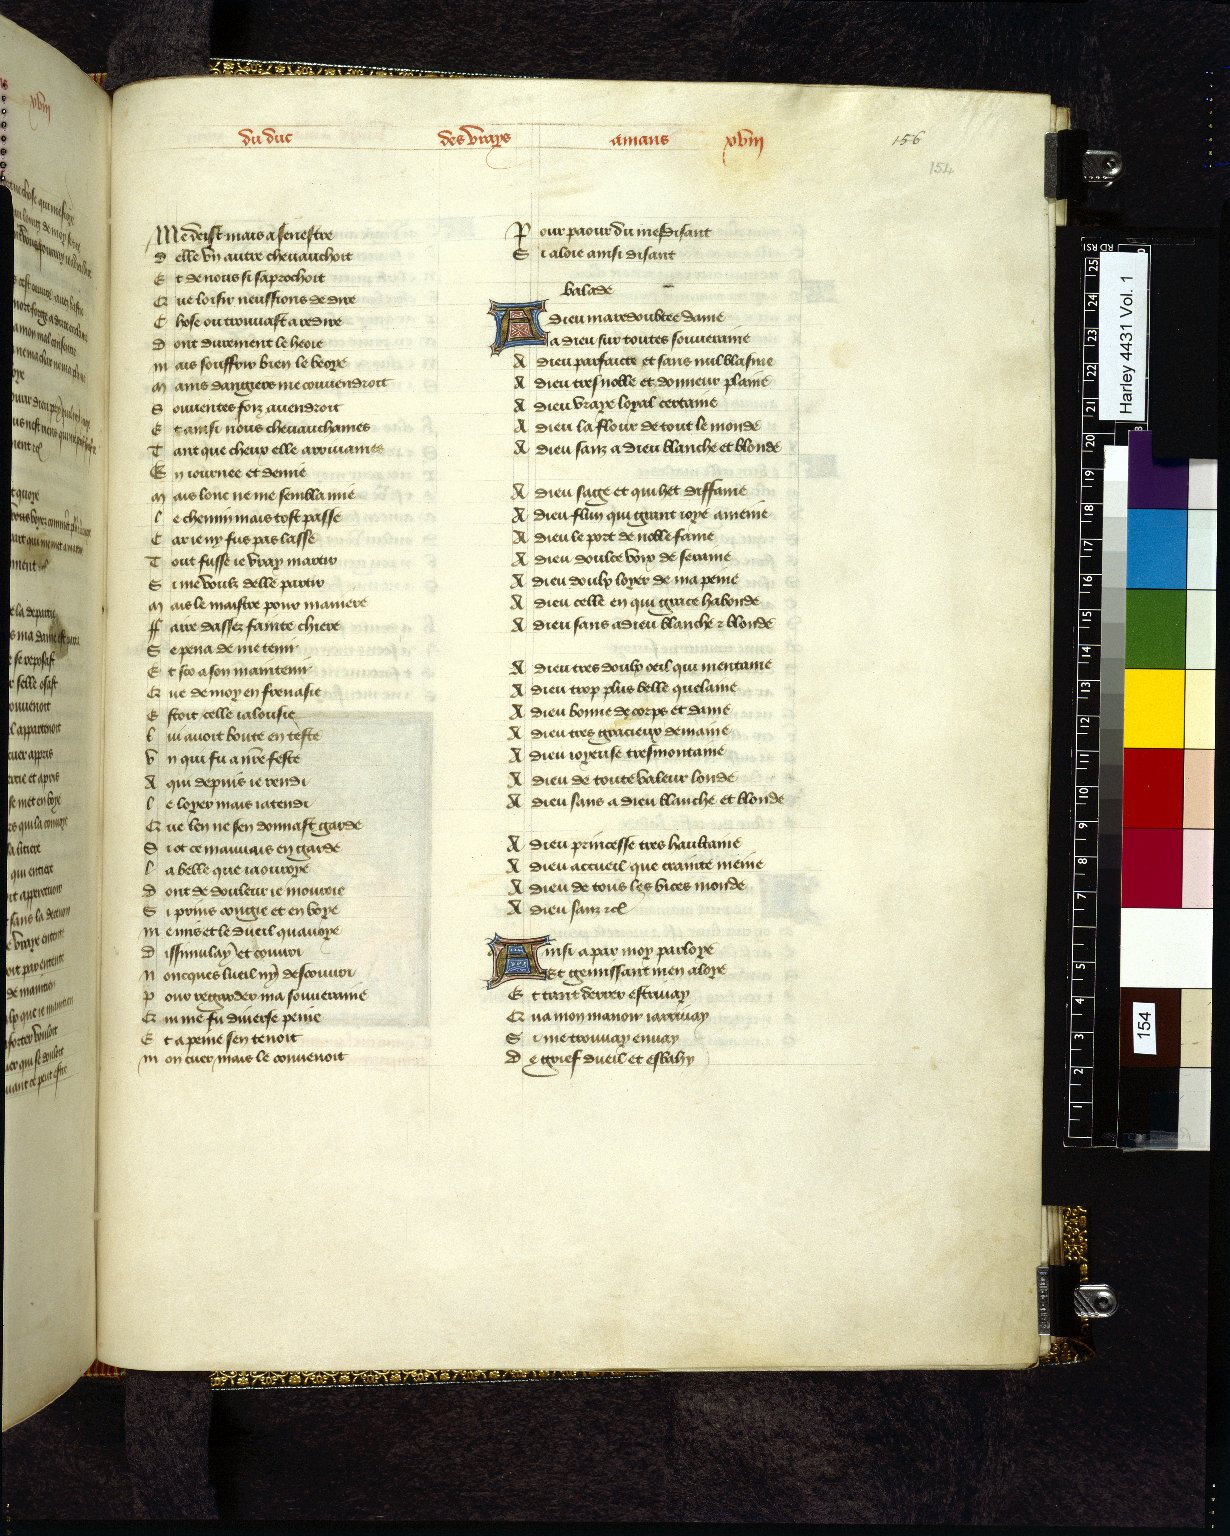 du duc des vrays amans xviii
156
154
Me deist mais a senestre
D elle vn autre cheuauchoit
E t de nous si saprochoit
Q ue loisir neussions de dire
C hose ou trouuast a redire
D ont durement le heoie
M ais souffrir bien le deoye
M ains dangiers me conuendroit
S ouuentes foiz auendroit
E t ainsi nous cheuauchames
T ant que cheux elle arriuames
E n iournee et demie
M ais lonc ne me sembla mie
L e chemin mais tost passe
C ar ie ny fus pas lasse
T out fusse ie vray martir
S i me voulz delle partir
M ais le maistre pour maniere
ff aire dassez fainte chiere
S e pena de me tenir
E t sco a son maintenir
Q ue de moy en frenasie
E stoit celle ialousie
L ui auoit boute en teste
V n qui fu a nre feste
A qui depuis ie rendi
L e loyer mais iatendi
Q ue len ne sen donnast garde
D iot ce mauuais en garde
L a belle que iaouroye
D ont de douleur ie mouroie
S i prins congie et en voye
M e mis et le dueil quauoye
D issimulay et couuri
N oncques lueil ny descouuri
P our regarder ma souueraine
Q ui me fu diuerse peine
E t a peine sen tenoit
M on cuer mais le conuenoit
P our paour du mesdisant
S i aloie ainsi disant
balade
A dieu ma redoubtee dame
A a dieu sur toutes souueraine
A dieu parfaicte et sans nul blasme
A dieu tres noble et donneur plaine
A dieu vraye loyal certaine
A dieu la flour de tout le monde
A dieu sanz a dieu blanche et blonde
A dieu sage et qui het diffame
A dieu flun qui grant ioye ameine
A dieu le port de noble fame
A dieu doulce voix de seraine
A dieu doulx loyer de ma peine
A dieu celle en qui grace habonde
A dieu sans adieu blanche et blonde
A dieu tres doulx oeil qui mentame
A dieu trop plus belle quelaine
A dieu bonne de corps et dame
A dieu tres gracieux demaine
A dieu ioyeuse tresmontaine
A dieu de toute valeur londe
A dieu sans a dieu blanche et blonde
A dieu princesse tres haultaine
A dieu accueil que crainte meine
A dieu de tous les vices monde
A dieu sanz &c
A insi a par moy parloye
Et gemissant men aloye
E t tant derrer estriuay
Q ua mon manoir iarriuay
S i me trouuay enuay
D e grief dueil et esbahy
Harley 4431 Vol. 1
154
25
24
23
22
21
20
19
18
17
16
15
14
13
12
11
10
9
8
7
5
4
3
2
1